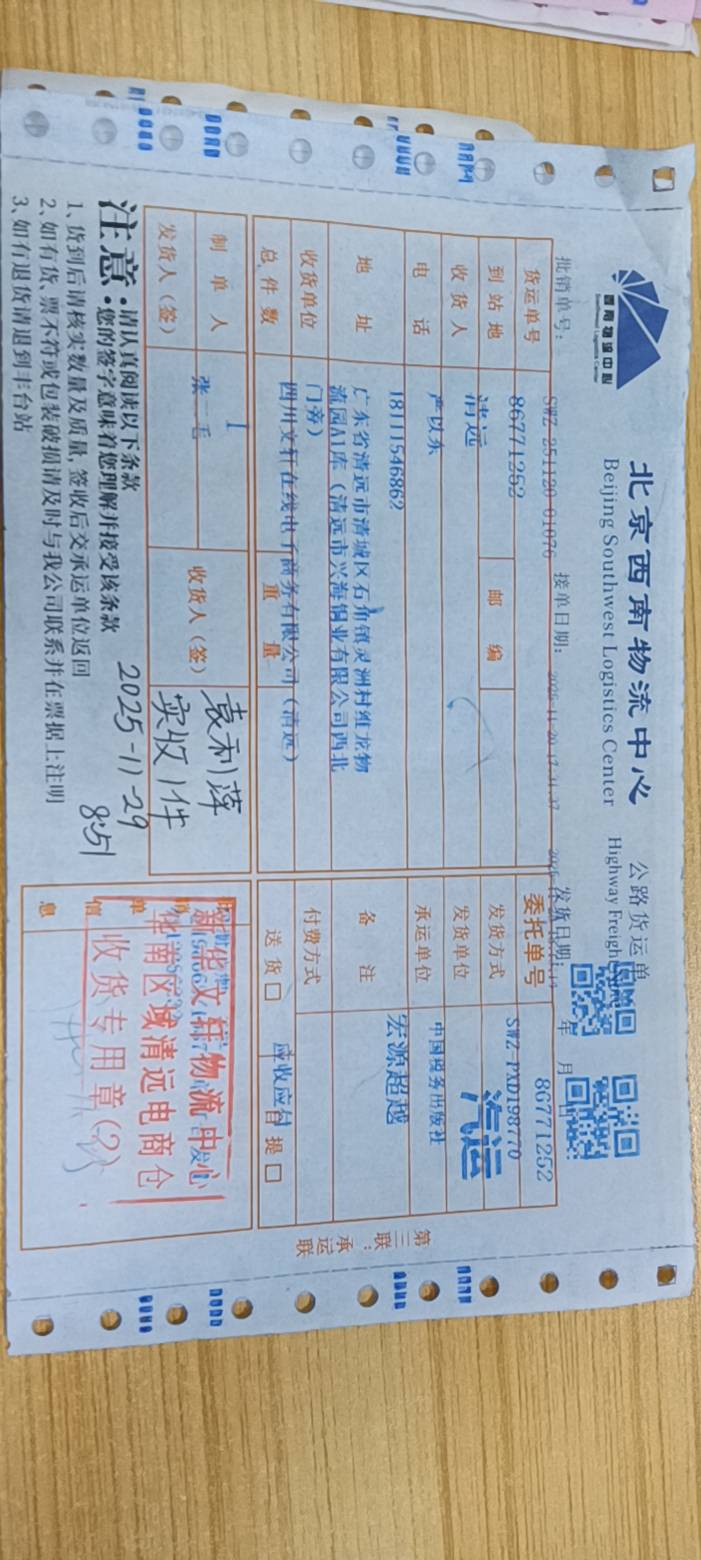 西南物流中心
Southwest Logistics Center
北京西南物流中心
公路货运单
Beijing Southwest Logistics Center
Highway Freigh
批销单号: SWZ-251120-01076
接单日期: 2025-11-20 17:31:37
发货日期: 年 月
货运单号 86771252
委托单号 86771252
到站地 清远
邮编
发货方式 SWZ-PXD198770
汽运
收货人 严以东
发货单位 中国税务出版社
电话 18111546862
承运单位 宏源超越
地址 广东省清远市清城区石角镇灵洲村维龙物
流园A1库(清远市兴海铜业有限公司西北
门旁)
备注
收货单位 四川文轩在线电子商务有限公司(清远)
付费方式 应收应付
总件数 1
重量
送货□ 自提□
制单人 张二毛
收货人(签) 袁利萍
实收1件
发货人(签)
2025-11-29
8:51
单信息
新华文轩物流中心
华南区域清远电商仓
收货专用章(2)
注意:请认真阅读以下条款
您的签字意味着您理解并接受该条款
1、货到后请核实数量及质量,签收后交承运单位返回
2、如有货、票不符或包装破损请及时与我公司联系并在票据上注明
3、如有退货请退到丰台站
第三联:承运联